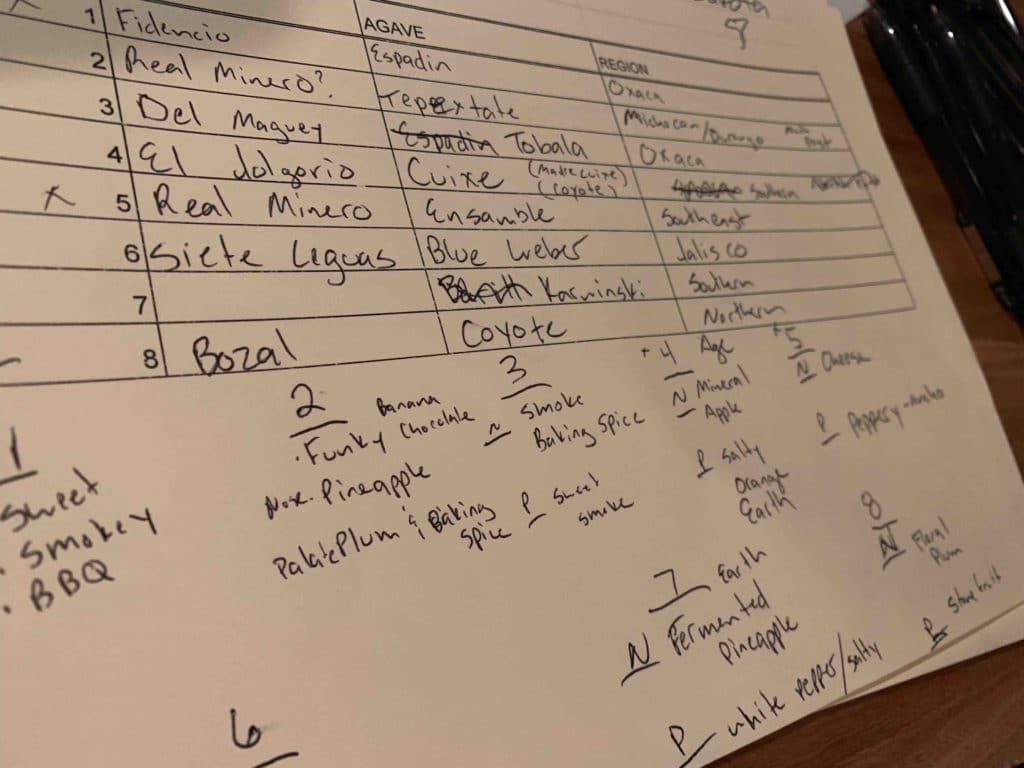 AGAVE
REGION
9
1 Fidencio Espadin Oxaca
2 Real Minero? Tepextate Michocan/Durango
3 Del Maguey Espadin Tobala Oxaca
4 El Jolgorio Cuixe (Madrecuixe) (Coyote) Southern
X 5 Real Minero Ensamble Southeast
6 Siete Leguas Blue Weber Jalisco
7 Karwinski Southern
8 Bozal Coyote Northern
1
Sweet
• Smokey
• BBQ
2
Banana
• Funky Chocolate
Nose - Pineapple
Palate Plum & Baking
Spice
3
N Smoke
Baking Spice
P Sweet
smoke
+ 4 Age
N Mineral
Apple
P Salty
Orange
Earth
+ 5
N Cheese
P Peppery - Ancho
6
7 Earth
N Fermented
Pineapple
P white pepper/salty
8
N Floral
Rum
P Stonefruit